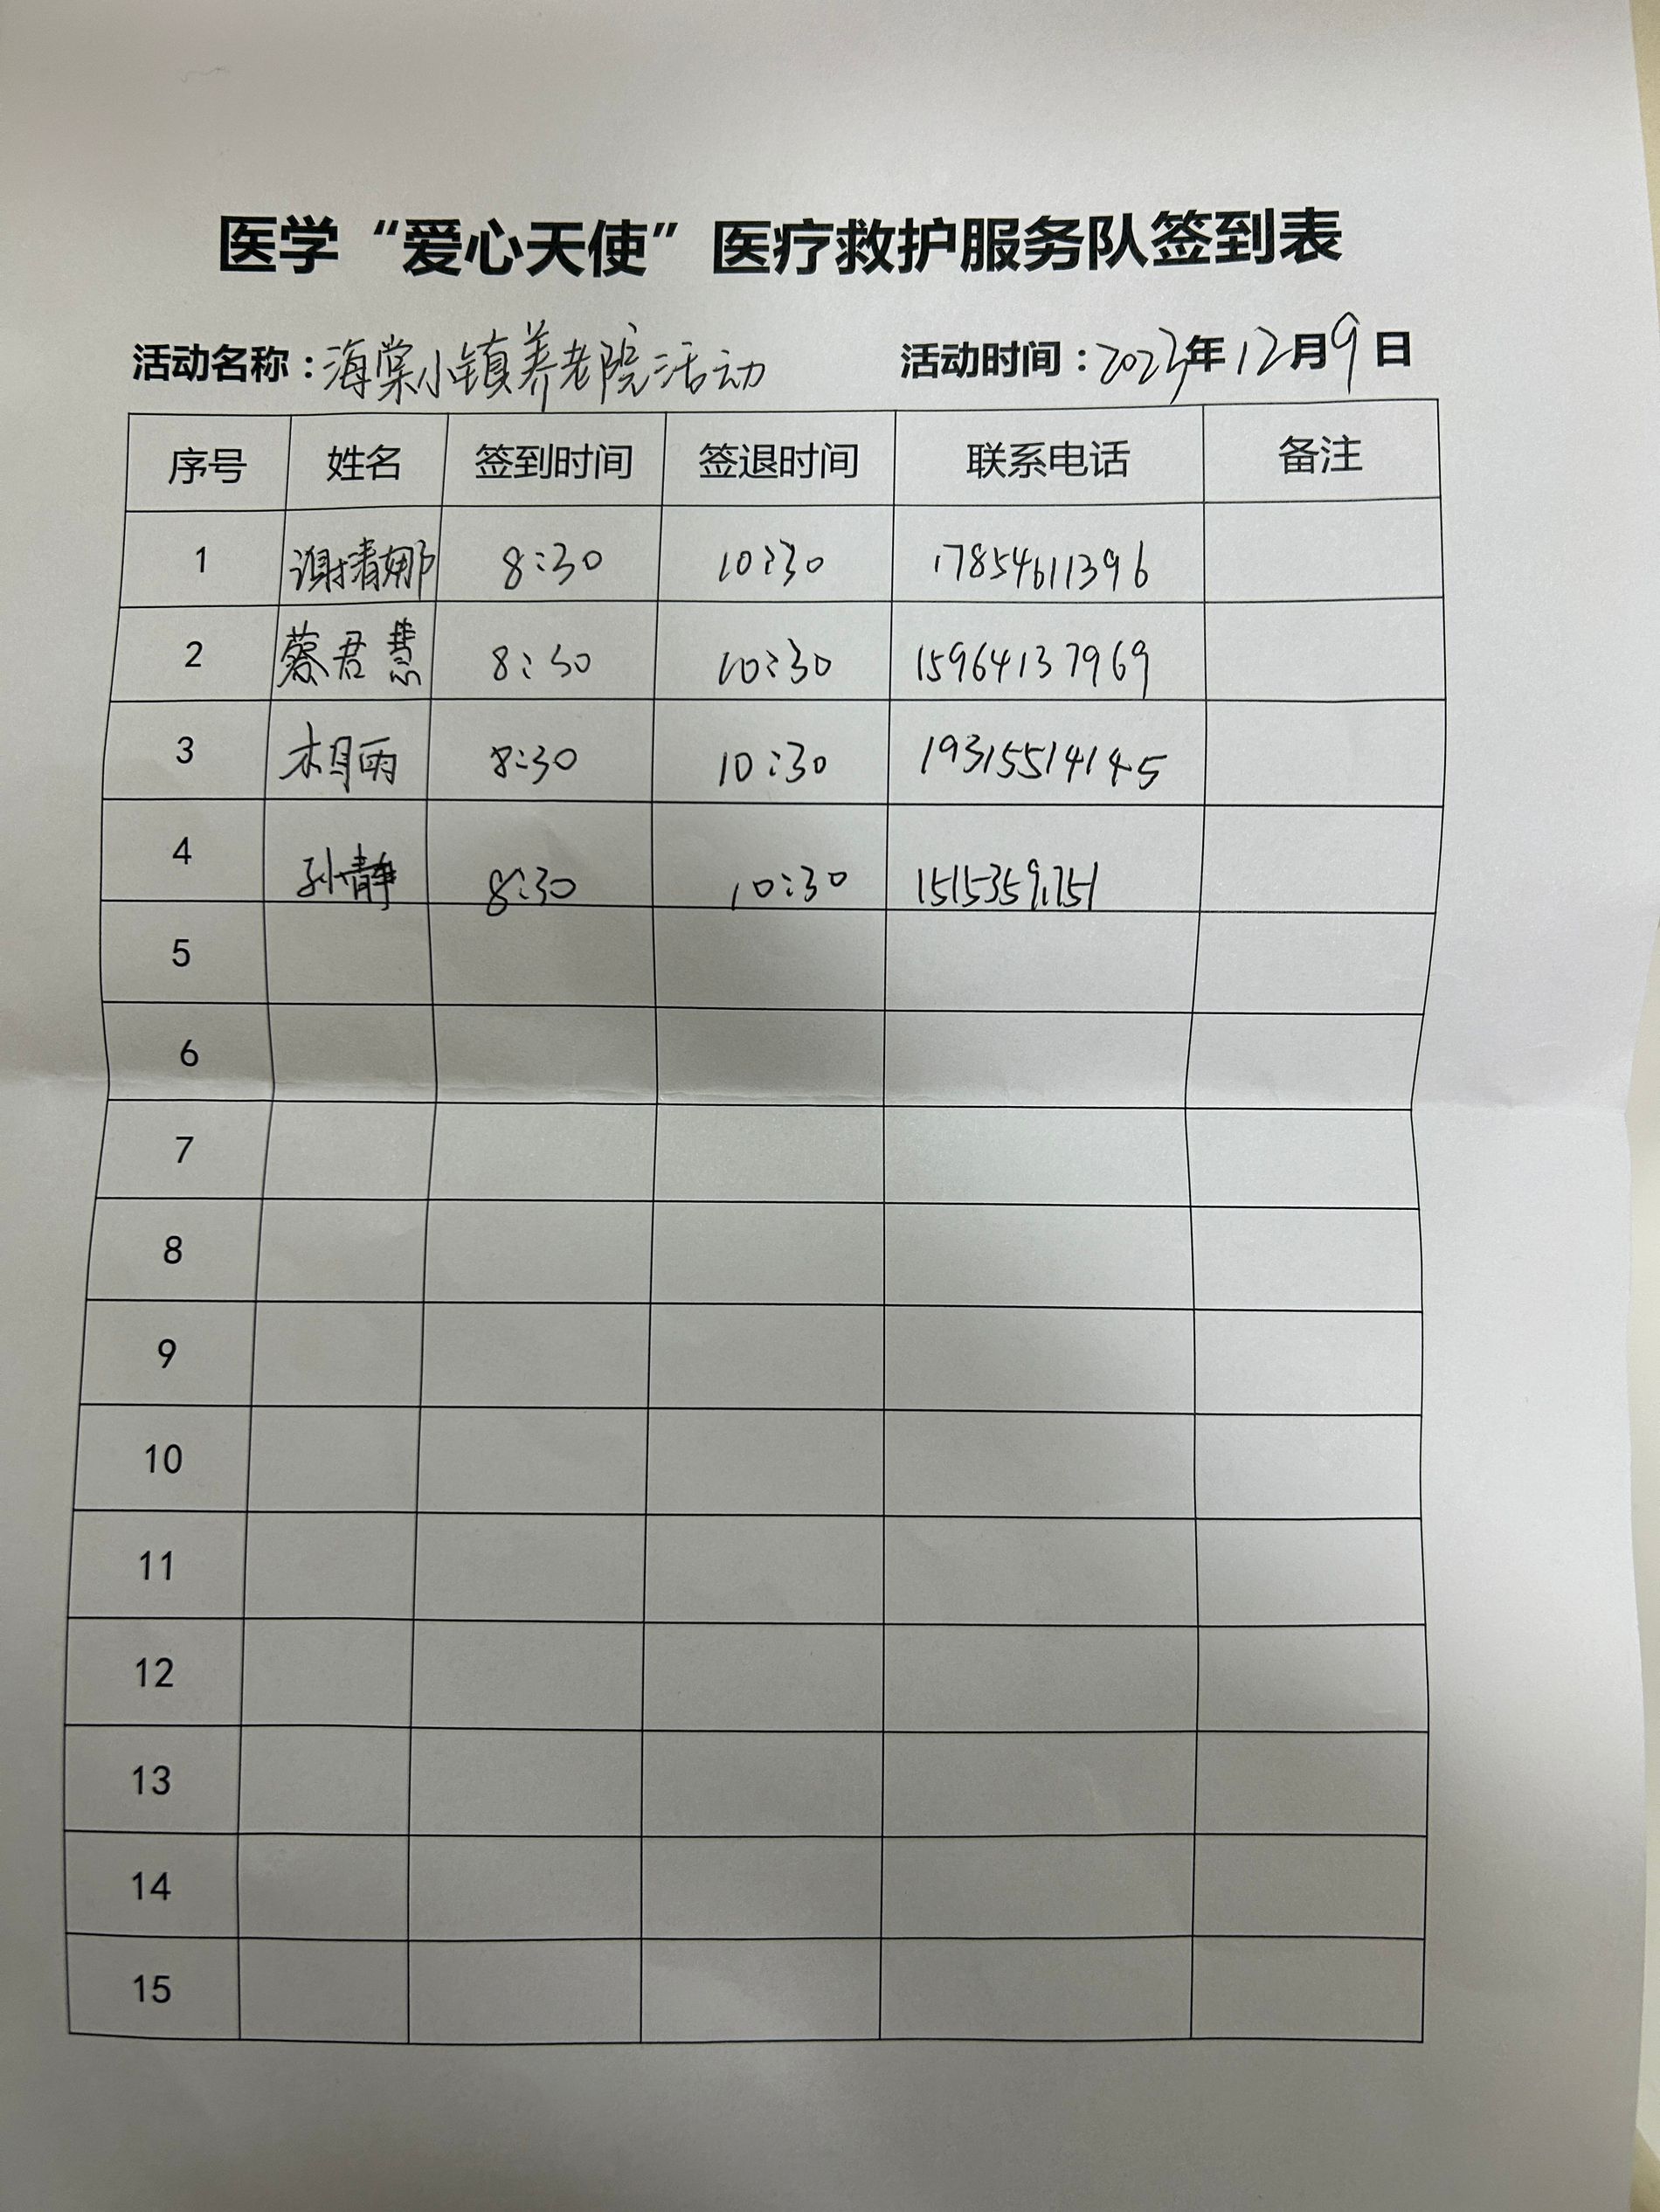 医学“爱心天使”医疗救护服务队签到表
活动名称：海棠小镇养老院活动 活动时间：2023年12月9日
序号 姓名 签到时间 签退时间 联系电话 备注
1 谢清娜 8:30 10:30 17854611396
2 蔡君慧 8:30 10:30 15964137969
3 相雨 8:30 10:30 19315514145
4 孙静 8:30 10:30
5
6
7
8
9
10
11
12
13
14
15